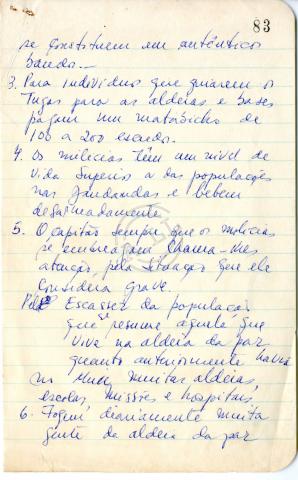 83
se constituem em autênticos
bandos.—
3. Para indivíduos que guiarem os
Tugas para as aldeias e bases
pagam um matabicho de
100 a 200 escudos.
4. Os milícias têm um nível de
vida superior a das populações
nas sandandas e bebem
desalmadamente.
5. O capitão sempre que os milícias
se embreagam chama-lhes
atenção, pela situação que ele
considera grave.
Escassez da população
que se resume aquela que
vive na aldeia da paz
quando anteriormente havia
no muitas aldeias,
escolas, missões e hospitais.
6. Fogem diariamente muita
gente da aldeia da paz